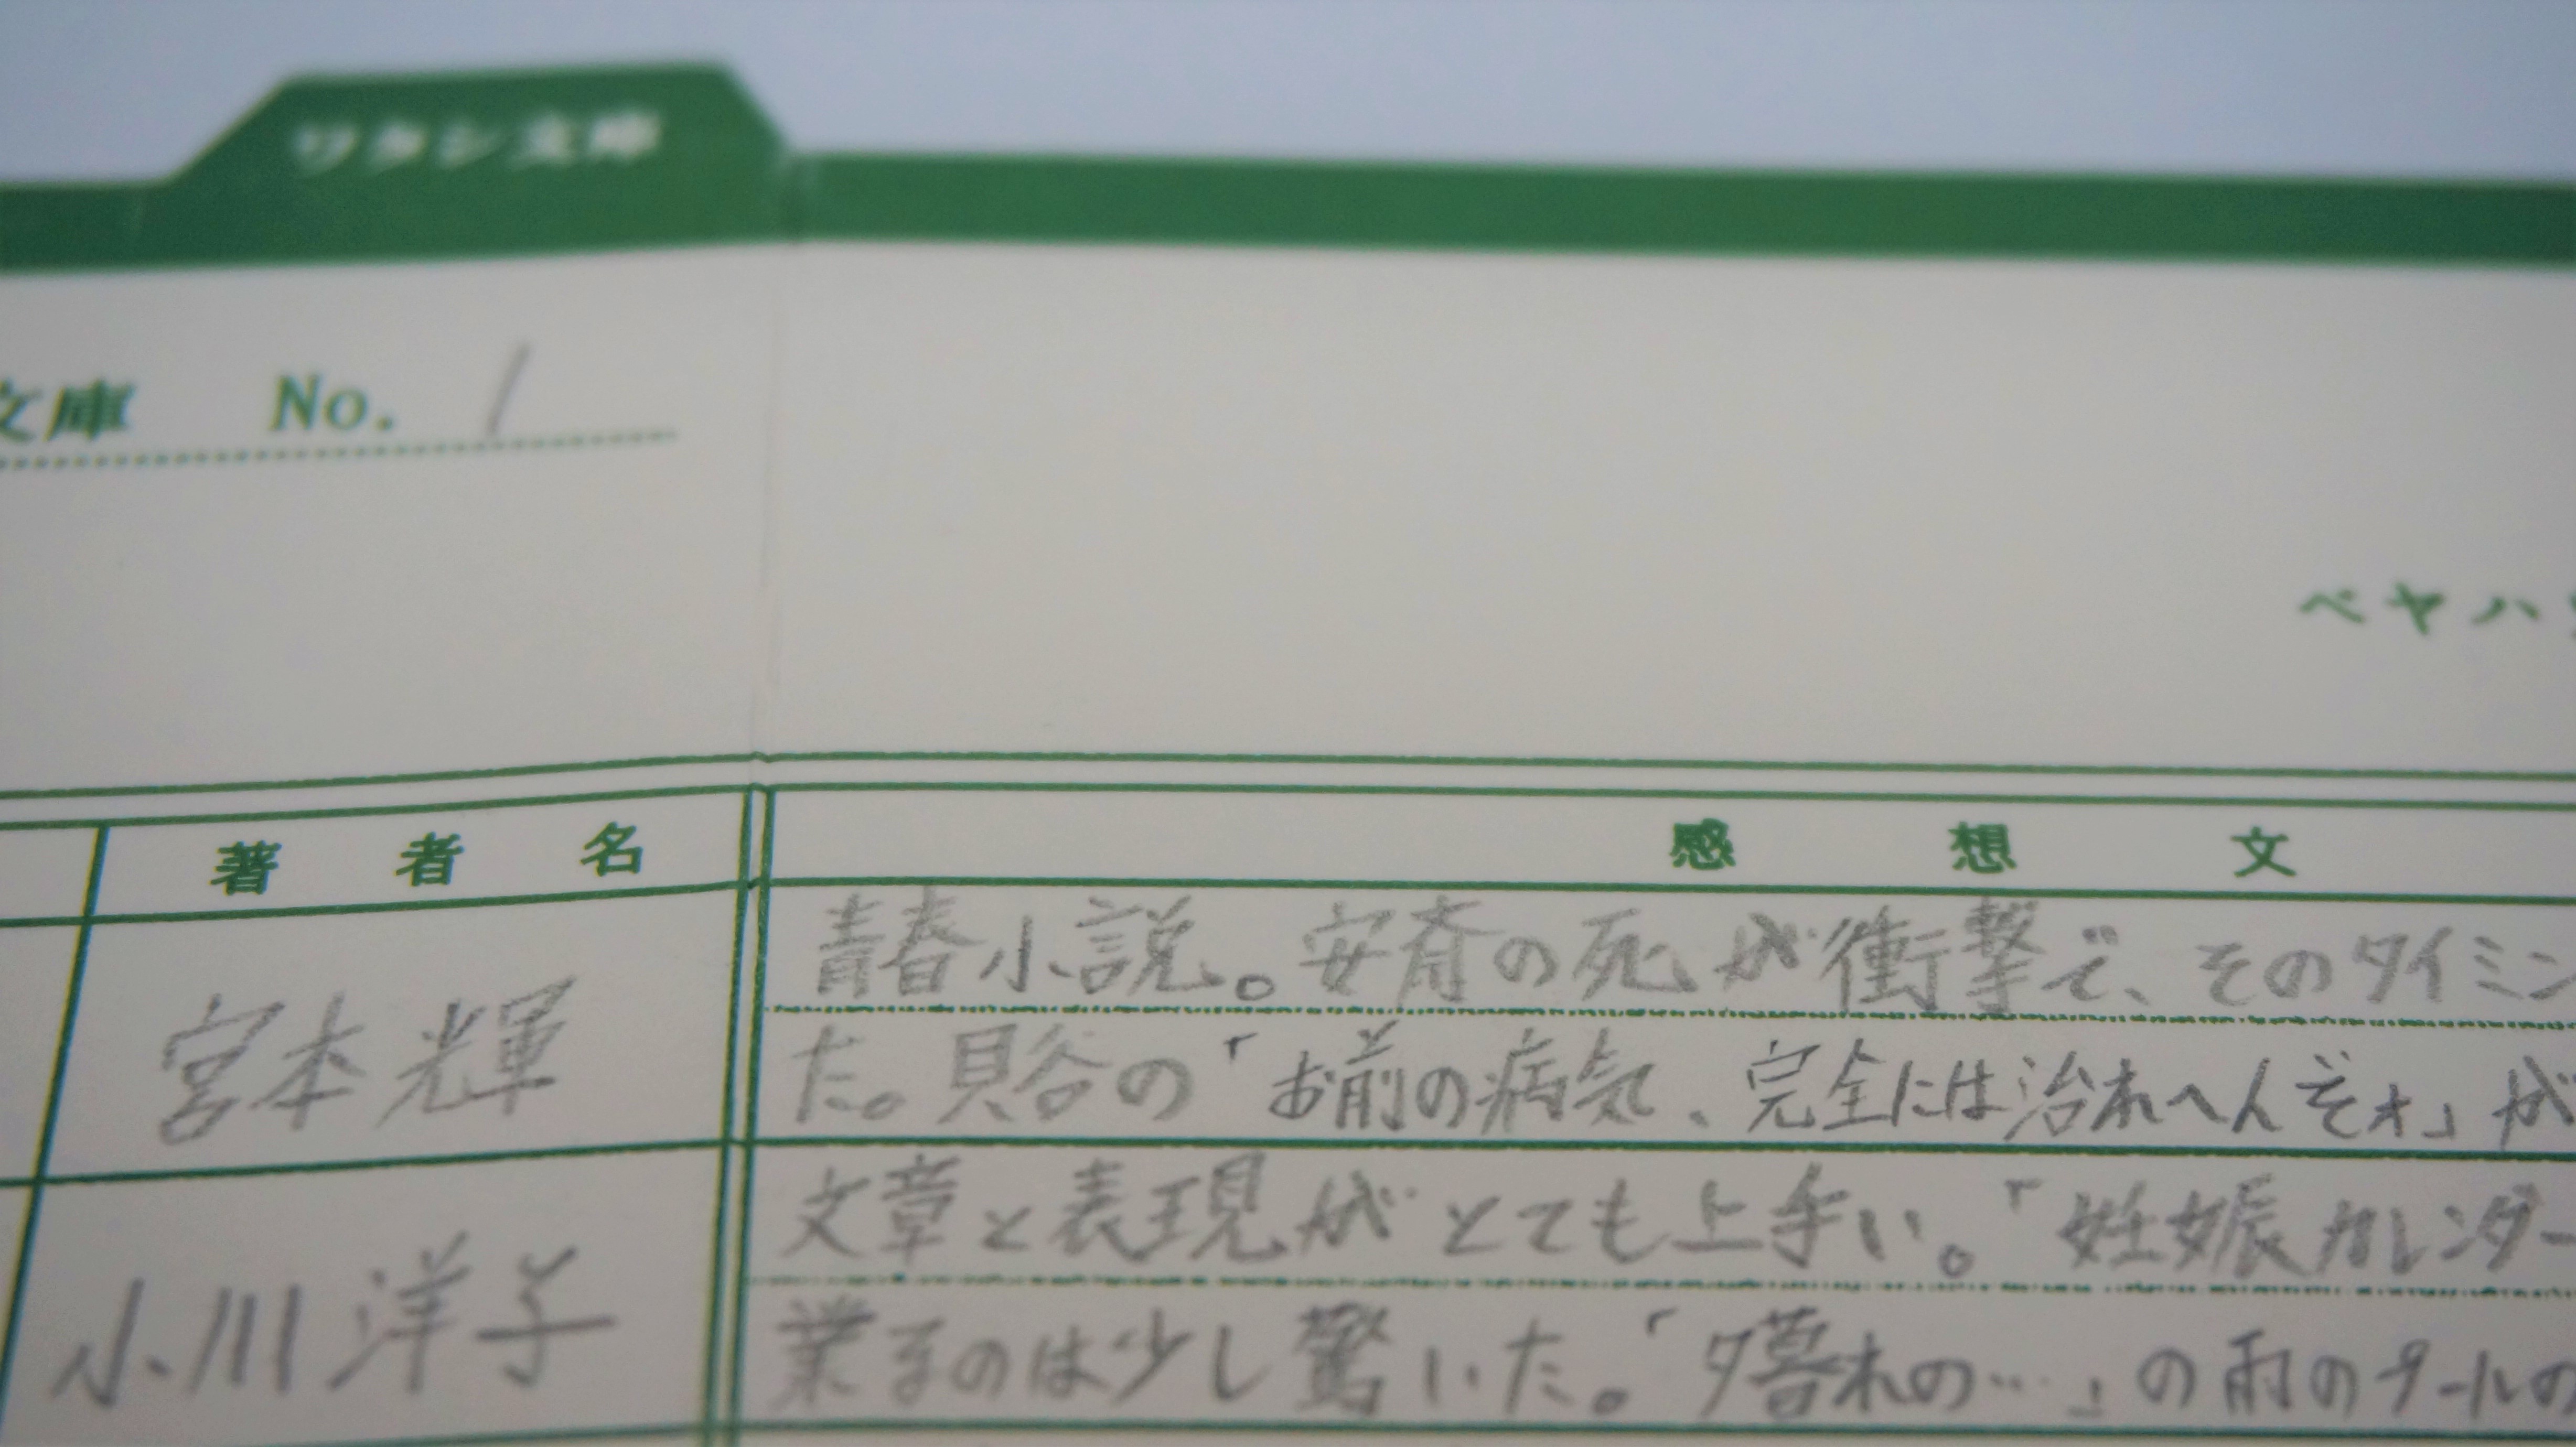 ワタシ文庫
文庫 No. 1
ベヤハ
著者名 感想文
宮本輝
青春小説。安斎の死が衝撃で、そのタイミン
た。貝谷の「お前の病気、完全には治れへんぞォ」が
小川洋子
文章と表現がとても上手い。「妊娠カレンダー
業るのは少し驚いた。「夕暮れの…」の雨のプールの